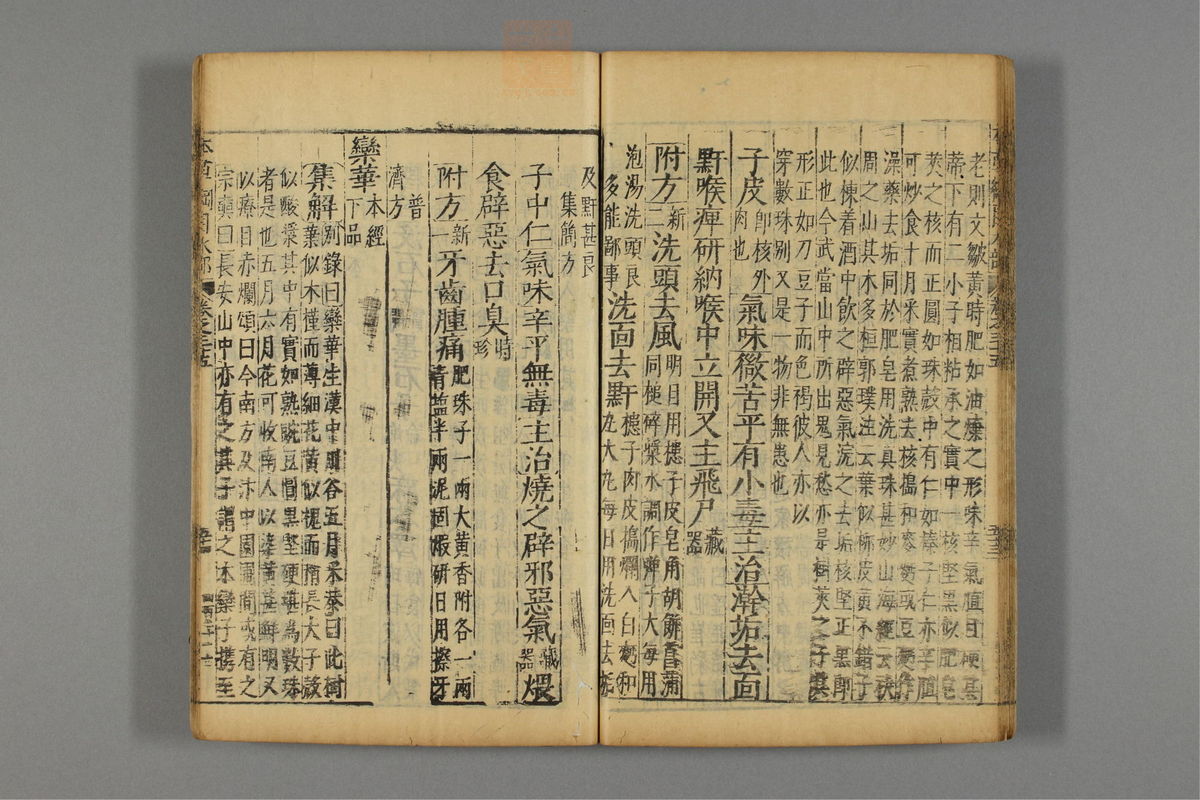 老則文皺黃時肥如油煠之形味辛氣膻且硬其
蒂下有二小子相粘承之實中一核堅黑似肥皂
莢之核而正圓如珠殼中有仁如榛子仁亦辛膻
可炒食十月采實煮熟去核搗和麥麪或豆麪作
澡藥去垢同於肥皂用洗真珠甚妙山海經云秩
周之山其木多桓郭璞注云葉似柳皮黃不錯子
似楝着酒中飲之辟惡氣浣之去垢核堅正黑即
此也今武當山中所出鬼見愁亦是樹莢之子其
形正如刀豆子而色褐彼人亦以
穿數珠别又是一物非無患也
子皮即核外肉也氣味微苦平有小毒主治澣垢去面
䵟喉痺研納喉中立開又主飛尸藏器
附方二新洗頭去風明目用槵子皮皂角胡餅菖蒲
同槌碎漿水調作彈子大每用
泡湯洗頭良多能鄙事洗面去䵟槵子肉皮搗爛入白麪和
丸大丸每日用洗面去垢
及䵟甚良集簡方
子中仁氣味辛平無毒主治燒之辟邪惡氣藏器煨
食辟惡去口臭時珍
附方一新牙齒腫痛肥珠子一兩大黃香附各一兩
青鹽半兩泥固煅研日用擦牙
普濟方
欒華本經下品
集解别錄曰欒華生漢中川谷五月采恭曰此樹
葉似木槿而薄細花黃似槐而稍長大子殼
似酸漿其中有實如熟豌豆圓黑堅硬堪為數珠
者是也五月六月花可收南人以染黃甚鮮明又
以療目赤爛頌曰今南方及汴中園圃間或有之
宗奭曰長安山中亦有之其子謂之木欒子携至